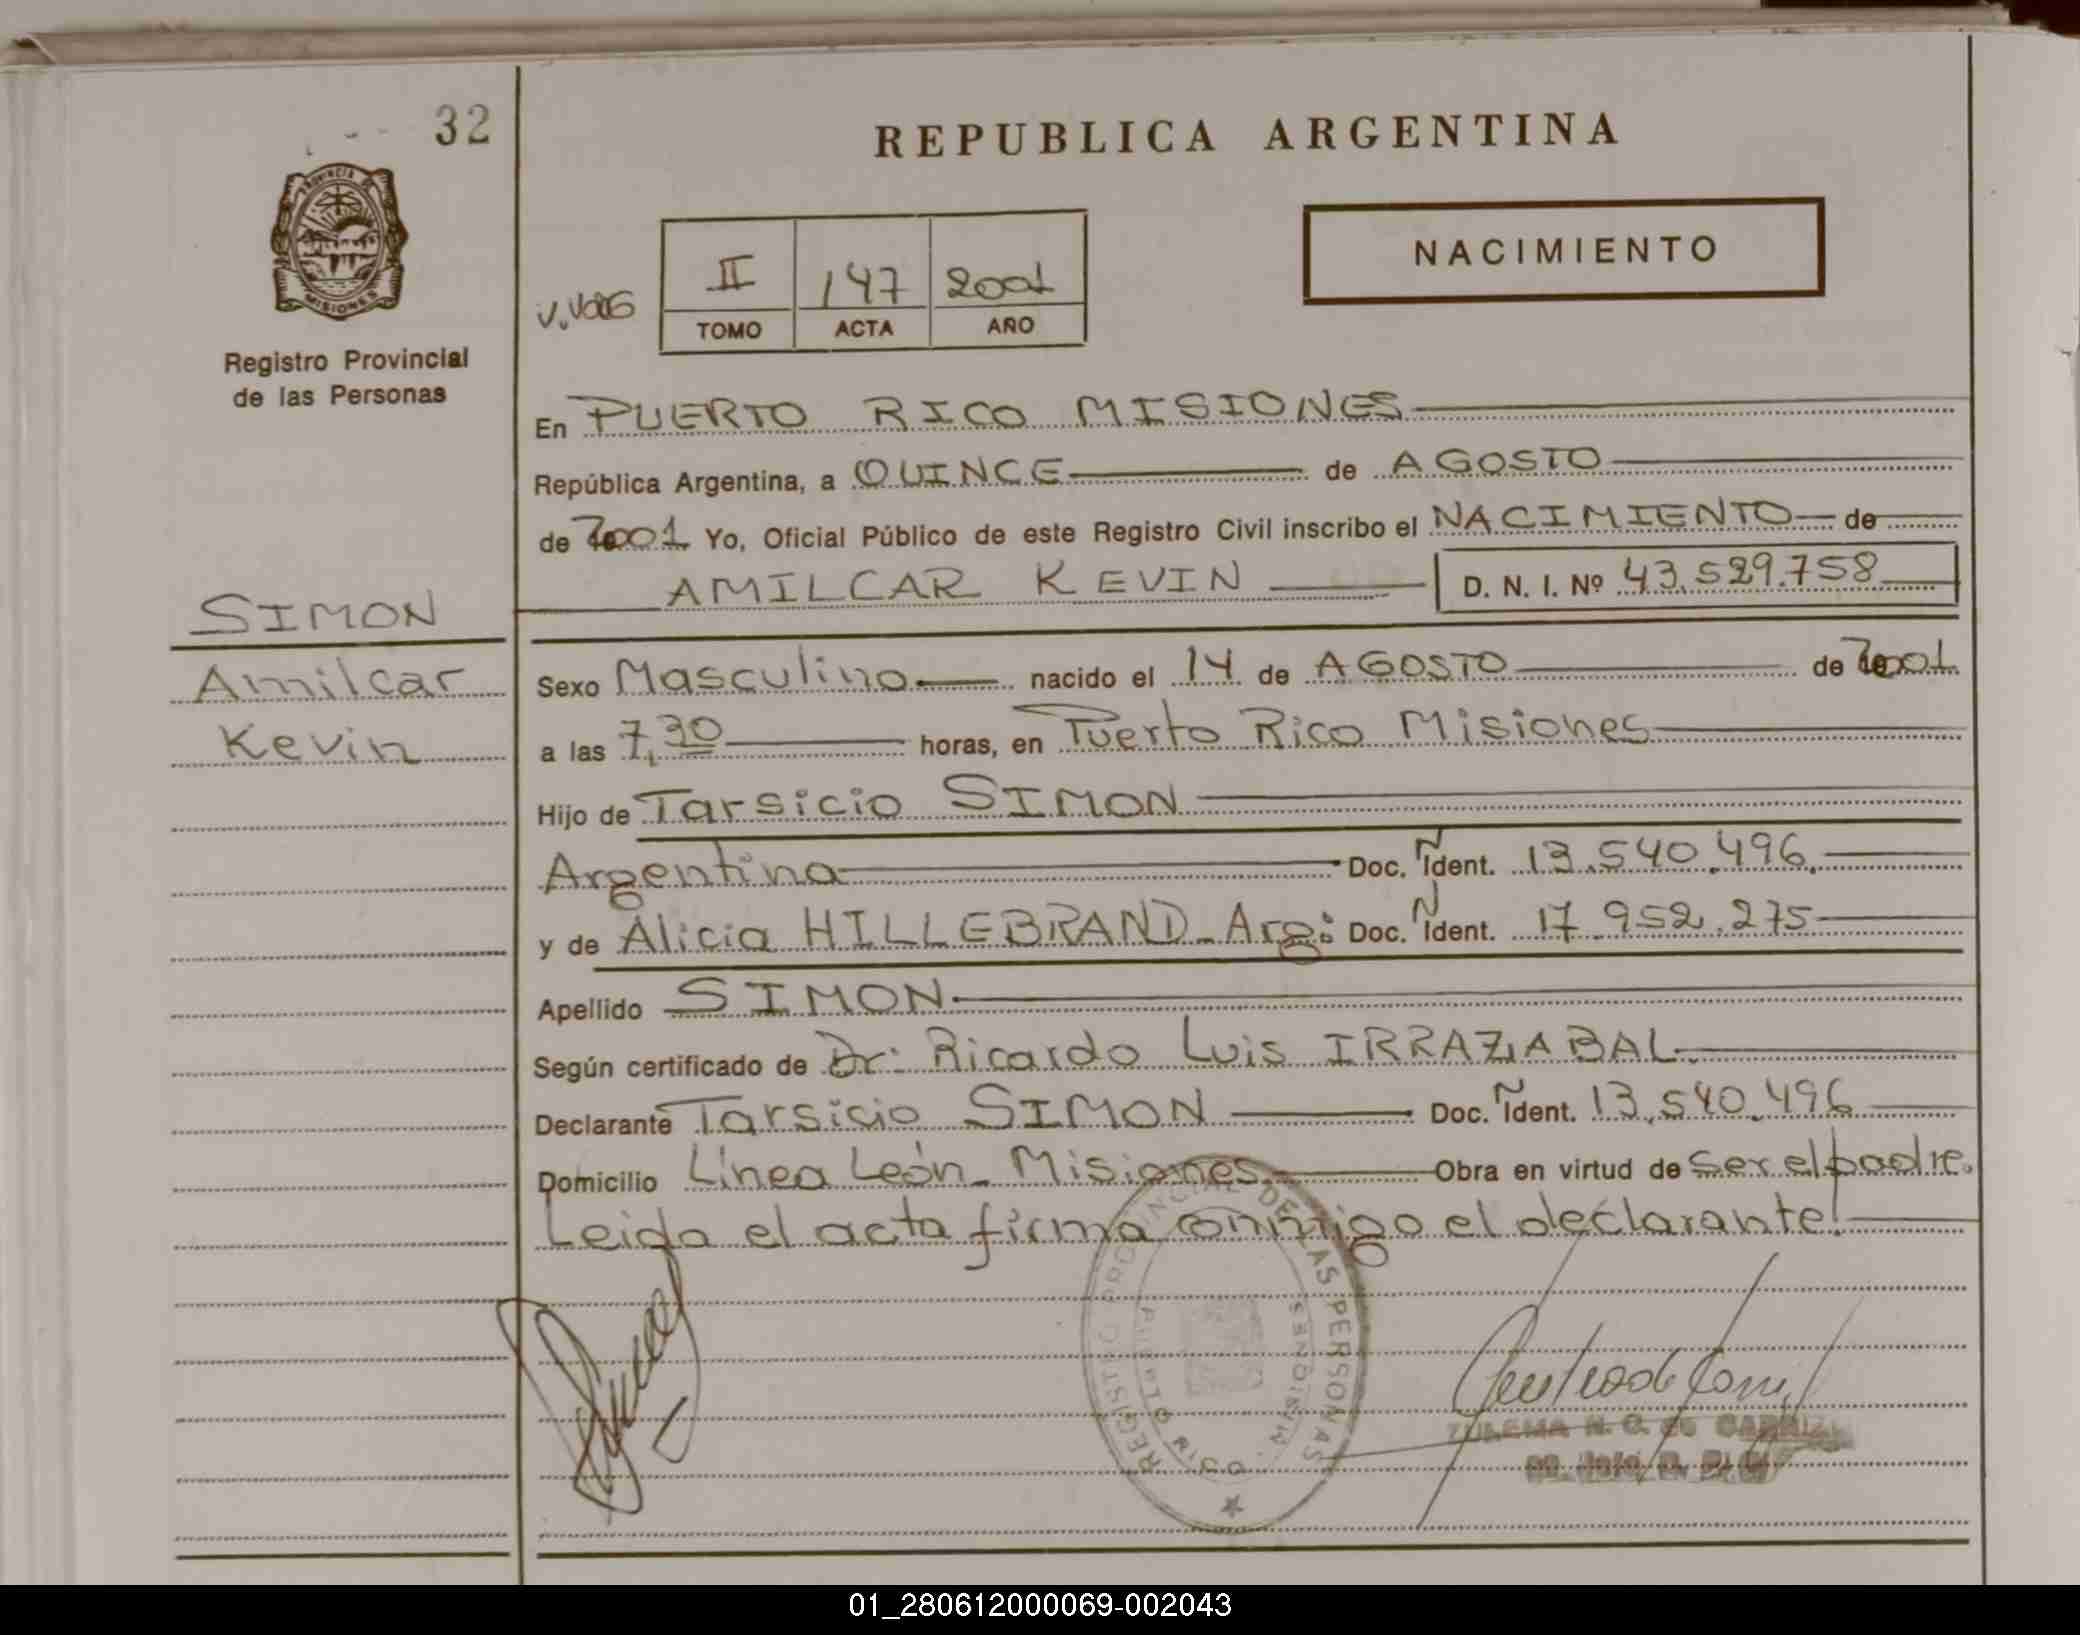 32
REPUBLICA ARGENTINA
PROVINCIA DE
MISIONES
Registro Provincial
de las Personas
II 147 2001
TOMO ACTA AÑO
NACIMIENTO
En PUERTO RICO MISIONES
República Argentina, a QUINCE de AGOSTO
de 2001 Yo, Oficial Público de este Registro Civil inscribo el NACIMIENTO de
AMILCAR KEVIN D. N. I. Nº 43.529.758
SIMON
Amilcar
Kevin
Sexo Masculino nacido el 14 de AGOSTO de 2001
a las 7,30 horas, en Puerto Rico Misiones
Hijo de Tarsicio SIMON
Argentina Doc. Ñ Ident. 13.540.496
y de Alicia HILLEBRAND - Arg: Doc. N Ident. 17.952.275
Apellido SIMON
Según certificado de Dr: Ricardo Luis IRRAZABAL.
Declarante Tarsicio SIMON Doc. Ñ Ident. 13.540.496
Domicilio Línea León - Misiones Obra en virtud de ser el padre.
Leida el acta firma conmigo el declarante!
REGISTRO PROVINCIAL DE LAS PERSONAS
MISIONES
01_280612000069-002043